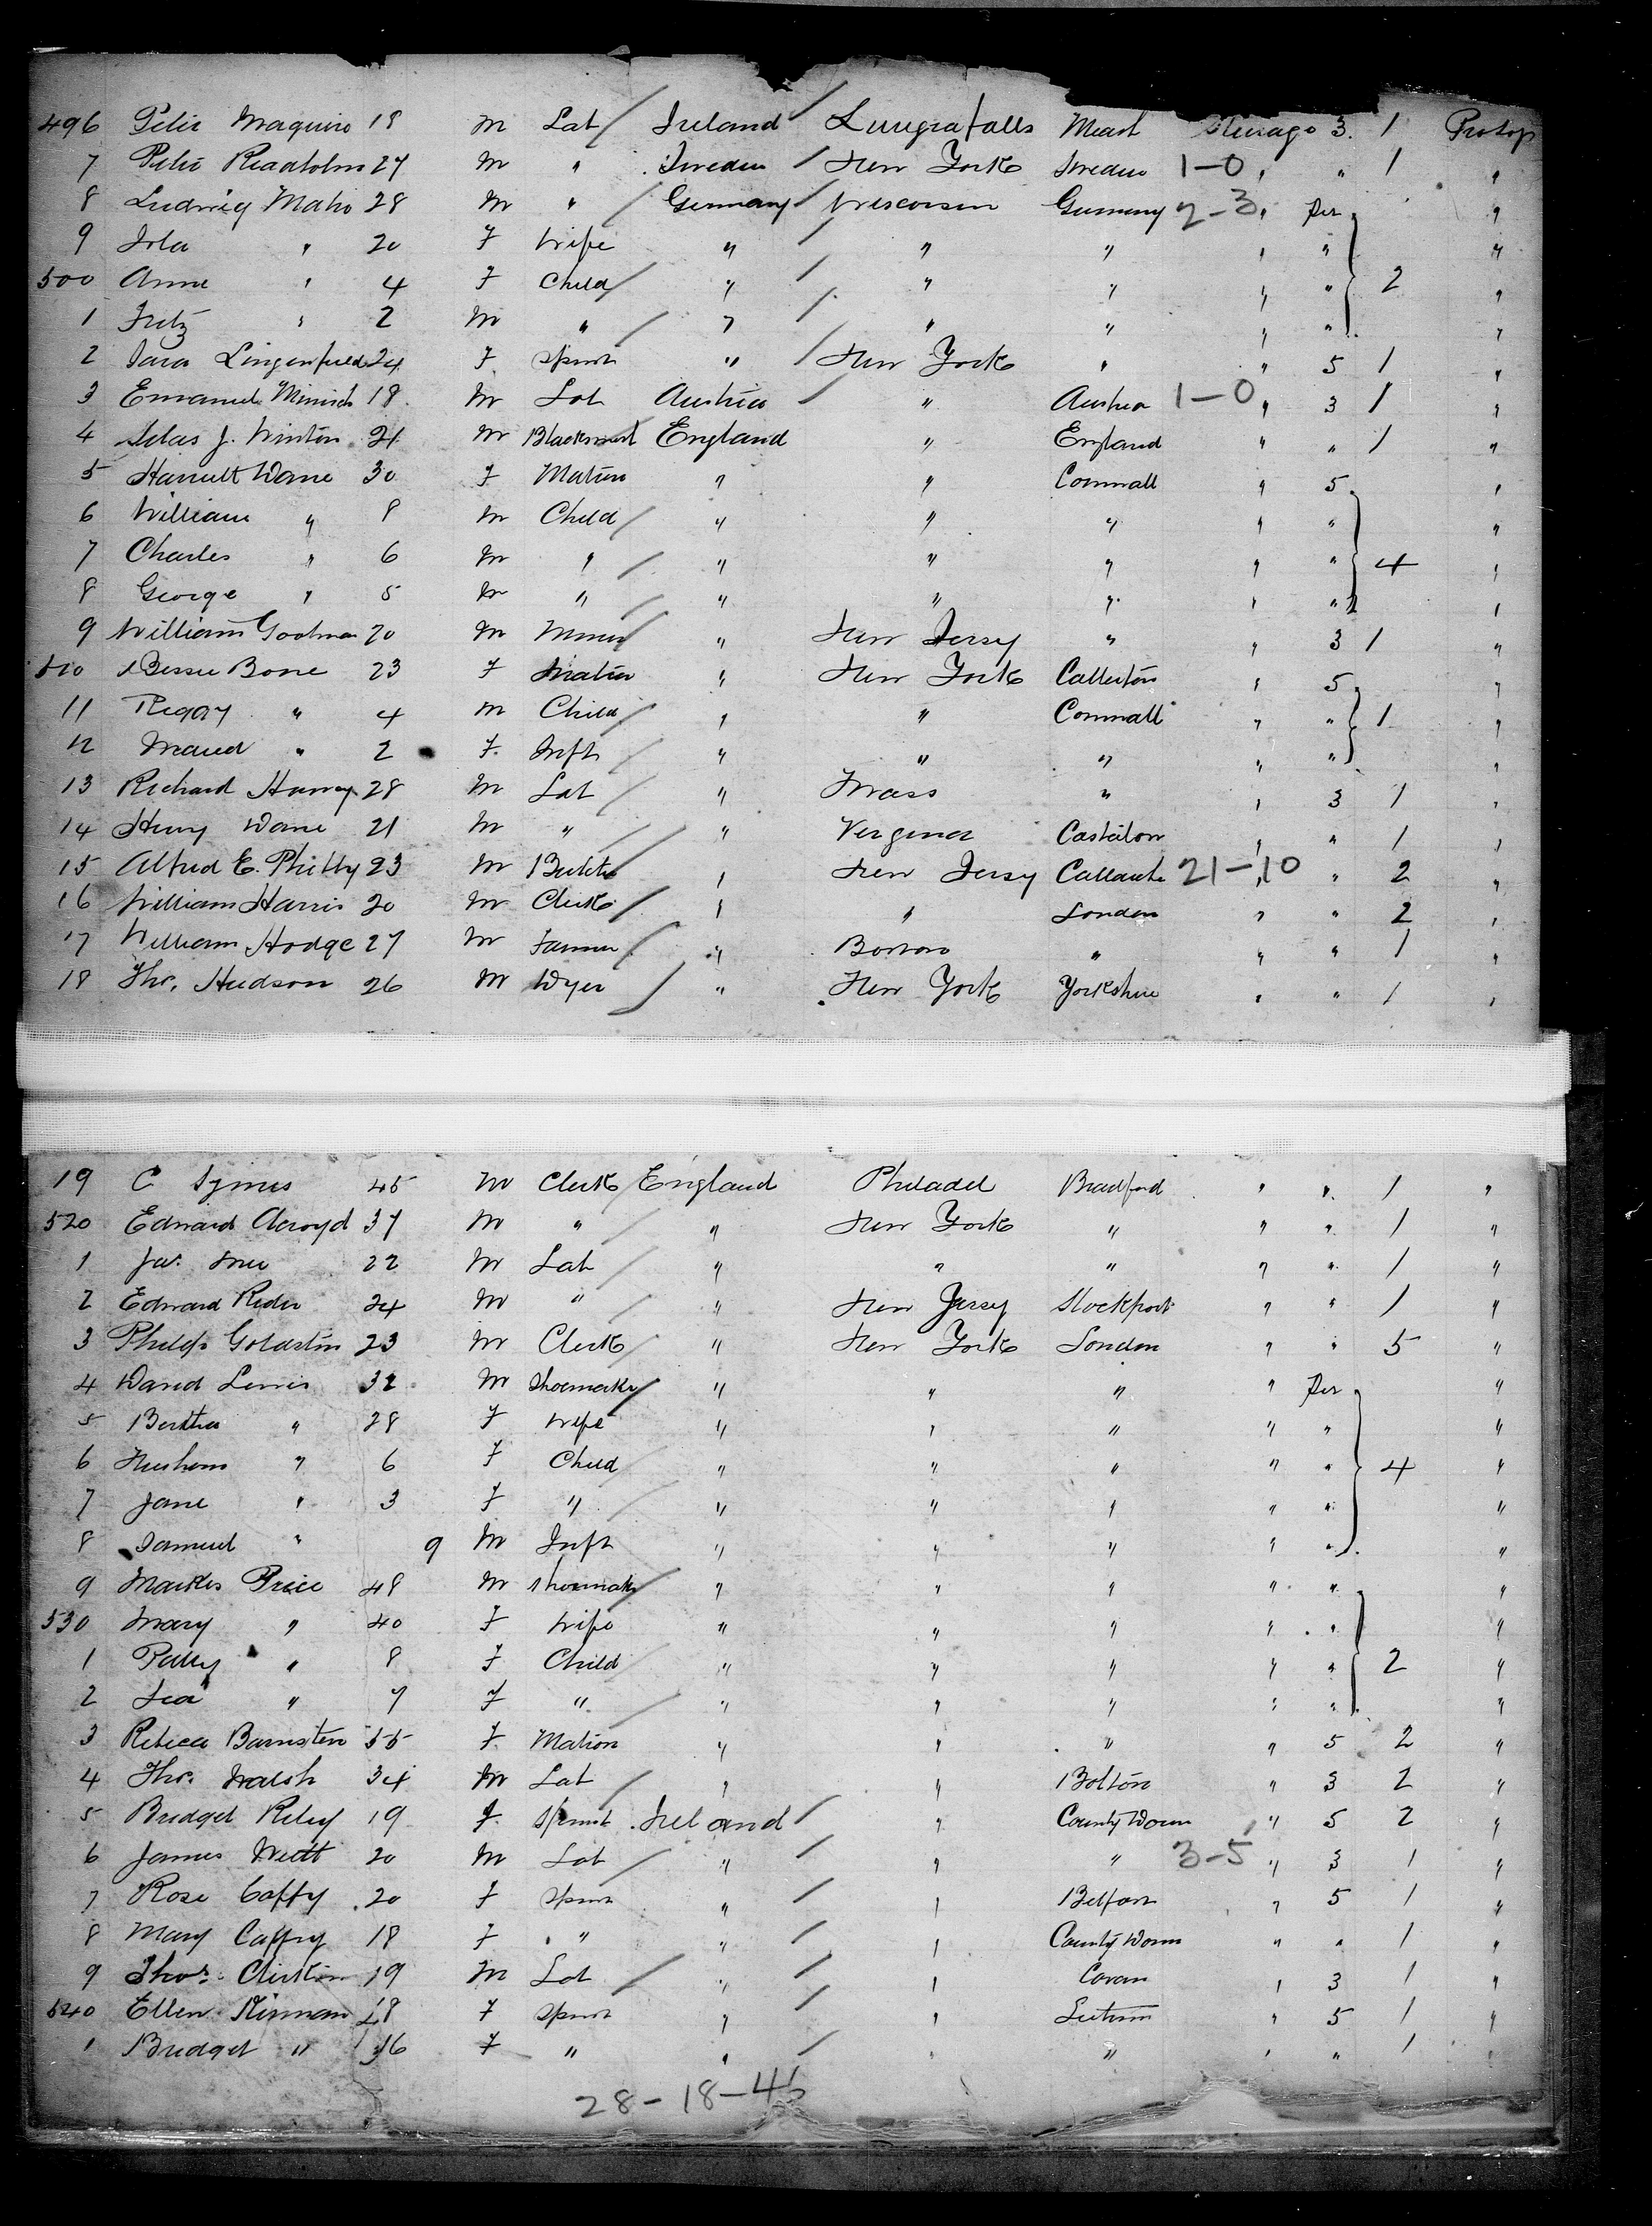 496 Peter Maquire 18 M Lab Ireland Meath Steerage 3. 1 Protop
7 Peter 27 M " Sweden New York Sweden 1-0 " " 1 "
8 Ludwig 28 M " Germany Wisconsin Germany 2-3 " "
9 " 20 F Wife " " " " " "
500 Anna " 4 F Child " " " " " 2 "
1 Fritz " 2 M " " " " " " "
2 Sara Lingenfield 24 F Spinst " New York " " 5 1 "
3 Emanuel 18 M Lab Austria " Austria 1-0 " 3 1 "
4 Silas J. Winton 21 M Blacksmith England " England " " 1 "
5 Harriett Dane 30 F Matron " " Cornwall " 5 "
6 William " 8 M Child " " " " " "
7 Charles " 6 M " " " " " " 4 "
8 George " 5 M " " " " " " "
9 William 20 M Miner " New Jersy " " 3 1 "
510 Bessie Bone 23 F Matron " New York " 5 "
11 " 4 M Child " " Cornwall " " 1 "
12 Maud " 2 F. Inft " " " " " "
13 Richard Harvey 28 M Lab " Mass " " 3 1 "
14 Henry Dane 21 M " " " " 1 "
15 Alfred E. 23 M " New Jersy 21-10 " " 2 "
16 William Harris 20 M Clerk " " London " " 2 "
17 William Hodge 27 M Farmer " Boston " " " 1 "
18 Tho. Hudson 26 M Dyer " New York Yorkshire " " 1 "
19 C Symes 45 M Clerk England Philadel Bradford " " 1 "
520 Edward Acroyd 37 M " " New York " " " 1 "
1 22 M Lab " " " " " 1 "
2 Edward Rider 24 M " " New Jersy Stockport " " 1 "
3 Philip Goldstin 23 M Clerk " New York London " " 5 "
4 David Lewis 32 M Shoemaker " " " " "
5 Bertha " 28 F Wife " " " " " "
6 " 6 F Child " " " " " 4 "
7 Jane " 3 F " " " " " " "
8 Samuel " 9 M Inft " " " " " "
9 Markes Price 48 M Shoemaker " " " " " "
530 Mary " 40 F Wife " " " " " "
1 " 8 F Child " " " " " 2 "
2 " 7 F " " " " " " "
3 Rebeca 55 F Matron " " " " 5 2 "
4 Tho. Walsh 34 M Lab " " Bolton " 3 2 "
5 Bridget Riley 19 F Spinst Ireland " County Down " 5 2 "
6 James 20 M Lab " " " 3-5 " 3 1 "
7 Rose Caffry 20 F Spinst " " Belfast " 5 1 "
8 Mary Caffry 18 F " " " County Down " " 1 "
9 Thos. 19 M Lab " " Cavan " 3 1 "
540 Ellen Kiernan 18 F Spinst " " Leitrim " 5 1 "
1 Bridget " 16 F " " " " " " 1 "
28-18-45